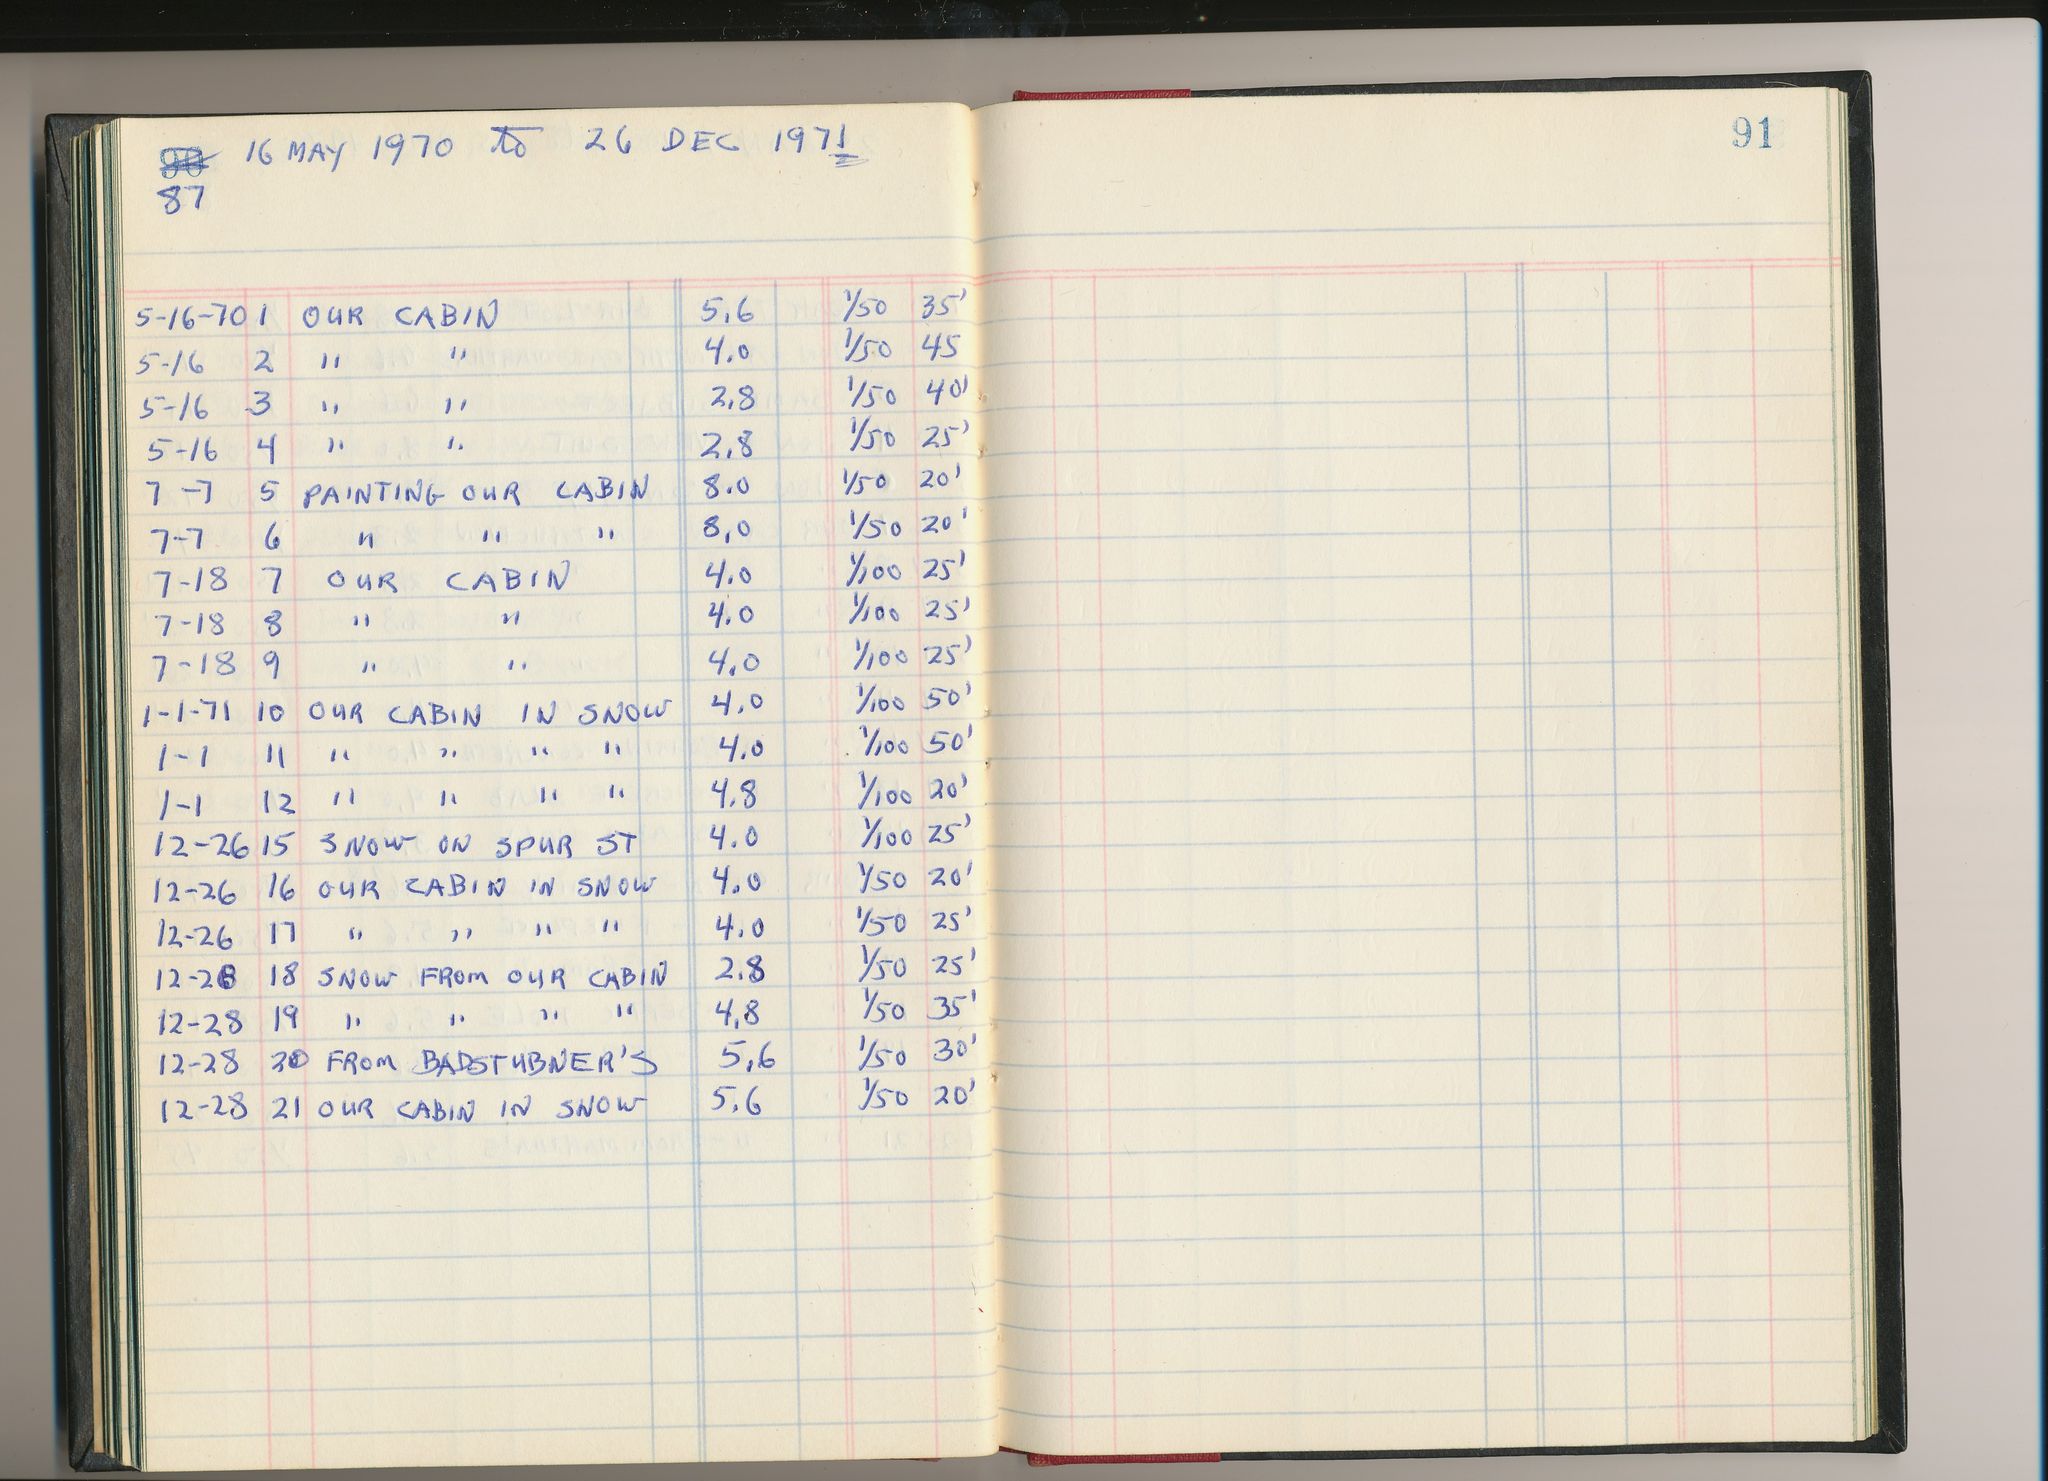 90 16 MAY 1970 to 26 DEC 1971
87
91
5-16-70 1 OUR CABIN 5.6 1/50 35'
5-16 2 " " 4.0 1/50 45
5-16 3 " " 2.8 1/50 40'
5-16 4 " " 2.8 1/50 25'
7-7 5 PAINTING OUR CABIN 8.0 1/50 20'
7-7 6 " " " 8.0 1/50 20'
7-18 7 OUR CABIN 4.0 1/100 25'
7-18 8 " " 4.0 1/100 25'
7-18 9 " " 4.0 1/100 25'
1-1-71 10 OUR CABIN IN SNOW 4.0 1/100 50'
1-1 11 " " " " 4.0 1/100 50'
1-1 12 " " " " 4.8 1/100 20'
12-26 15 SNOW ON SPUR ST 4.0 1/100 25'
12-26 16 OUR CABIN IN SNOW 4.0 1/50 20'
12-26 17 " " " " 4.0 1/50 25'
12-28 18 SNOW FROM OUR CABIN 2.8 1/50 25'
12-28 19 " " " " 4.8 1/50 35'
12-28 20 FROM BADSTUBNER'S 5.6 1/50 30'
12-28 21 OUR CABIN IN SNOW 5.6 1/50 20'